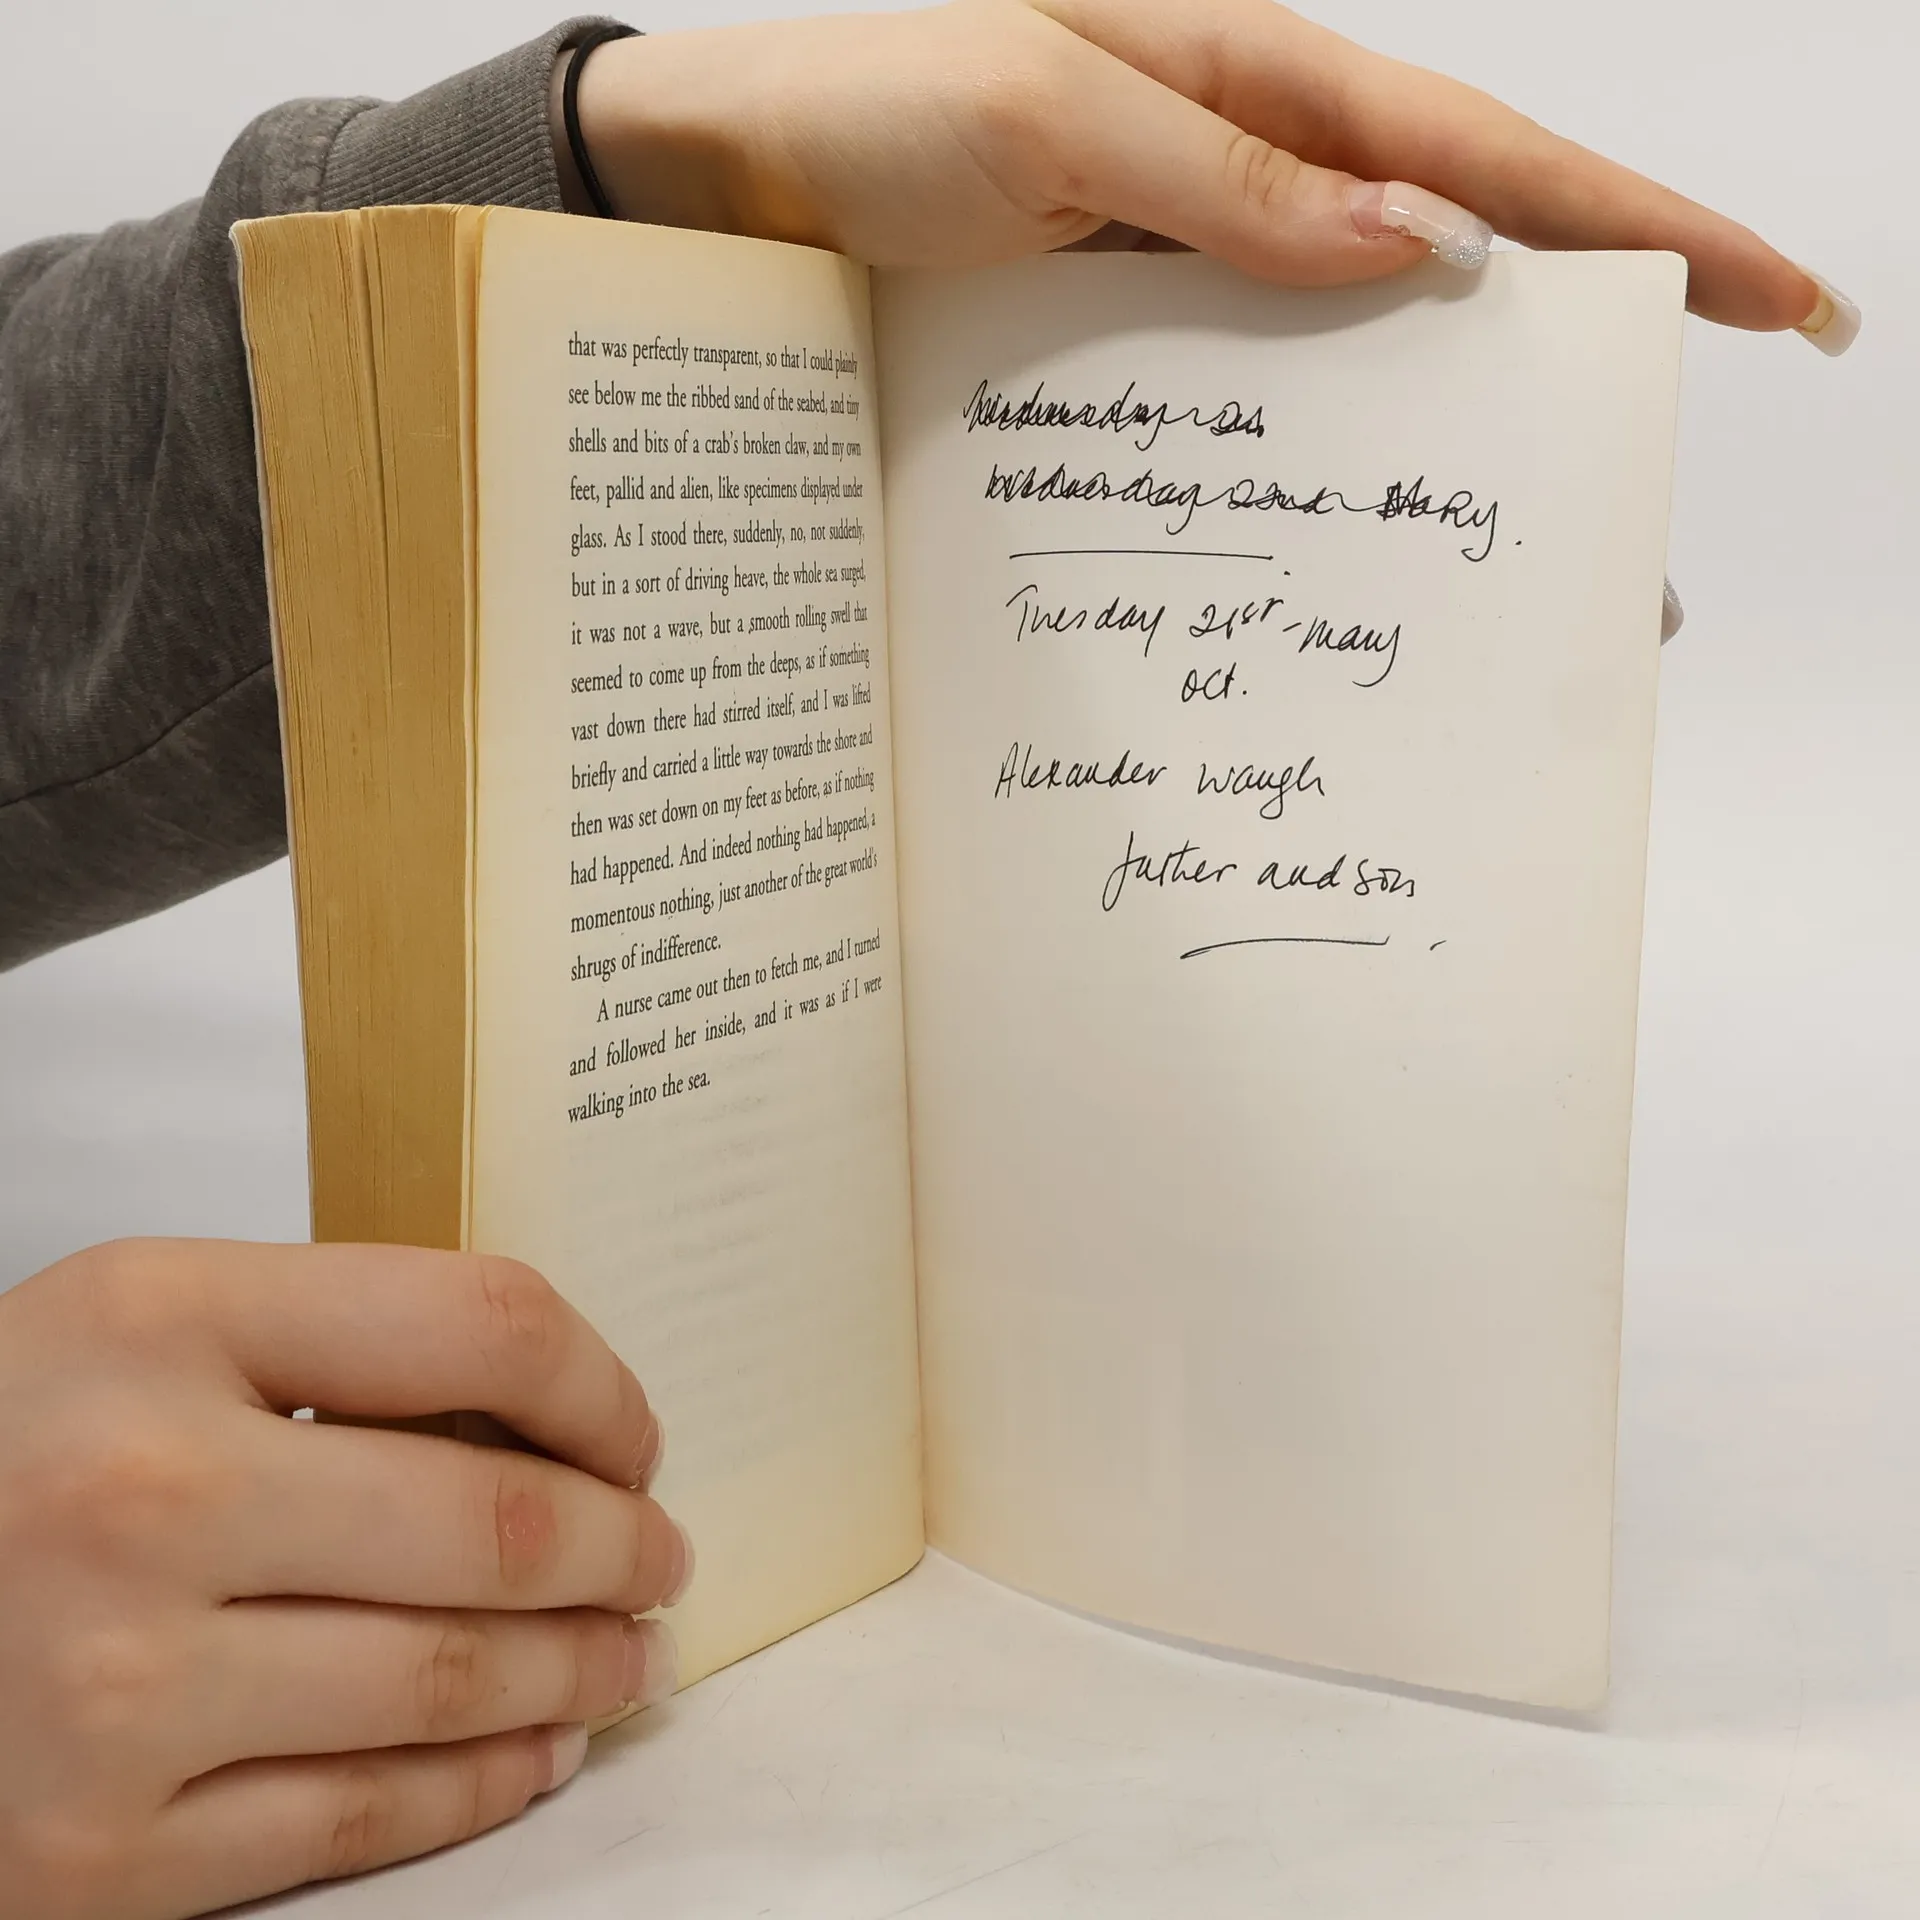 that was perfectly transparent, so that I could plainly
see below me the ribbed sand of the seabed, and tiny
shells and bits of a crab's broken claw, and my own
feet, pallid and alien, like specimens displayed under
glass. As I stood there, suddenly, no, not suddenly,
but in a sort of driving heave, the whole sea surged,
it was not a wave, but a smooth rolling swell that
seemed to come up from the deeps, as if something
vast down there had stirred itself, and I was lifted
briefly and carried a little way towards the shore and
then was set down on my feet as before, as if nothing
had happened. And indeed nothing had happened, a
momentous nothing, just another of the great world's
shrugs of indifference.
A nurse came out then to fetch me, and I turned
and followed her inside, and it was as if I were
walking into the sea.
Wednesday
Wednesday 22nd Mary.
Tuesday 21st - Mary
Oct.
Alexander Waugh
father and son